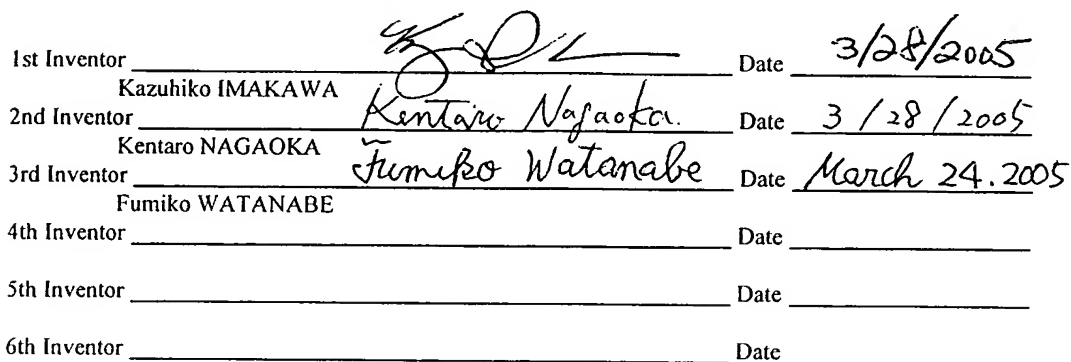 1st Inventor Date 3/28/2005
Kazuhiko IMAKAWA
2nd Inventor Kentaro Nagaoka. Date 3/28/2005
Kentaro NAGAOKA
3rd Inventor Fumiko Watanabe Date March 24. 2005
Fumiko WATANABE
4th Inventor Date
5th Inventor Date
6th Inventor Date